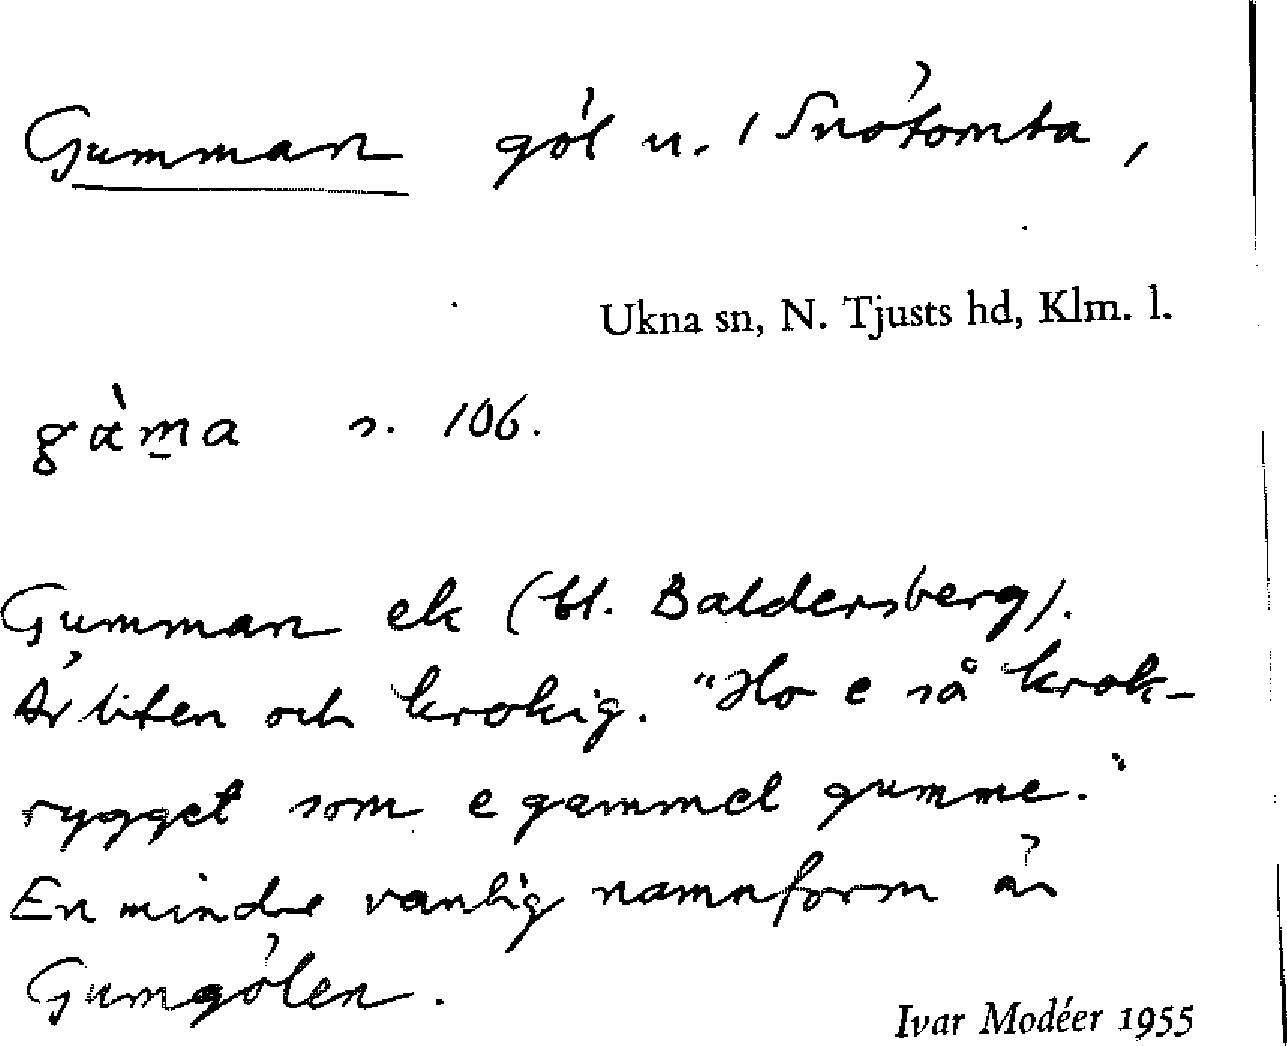 Gumman göl u. Snötomta,
Ukna sn, N. Tjusts hd, Klm. l.
gàma s. 106.
Gumman ek (bl. Baldersberg).
Är liten och krokig. "Ho e så krok-
rygget som e gammel gumme."
En mindre vanlig namnform är
Gumgölen.
Ivar Modéer 1955